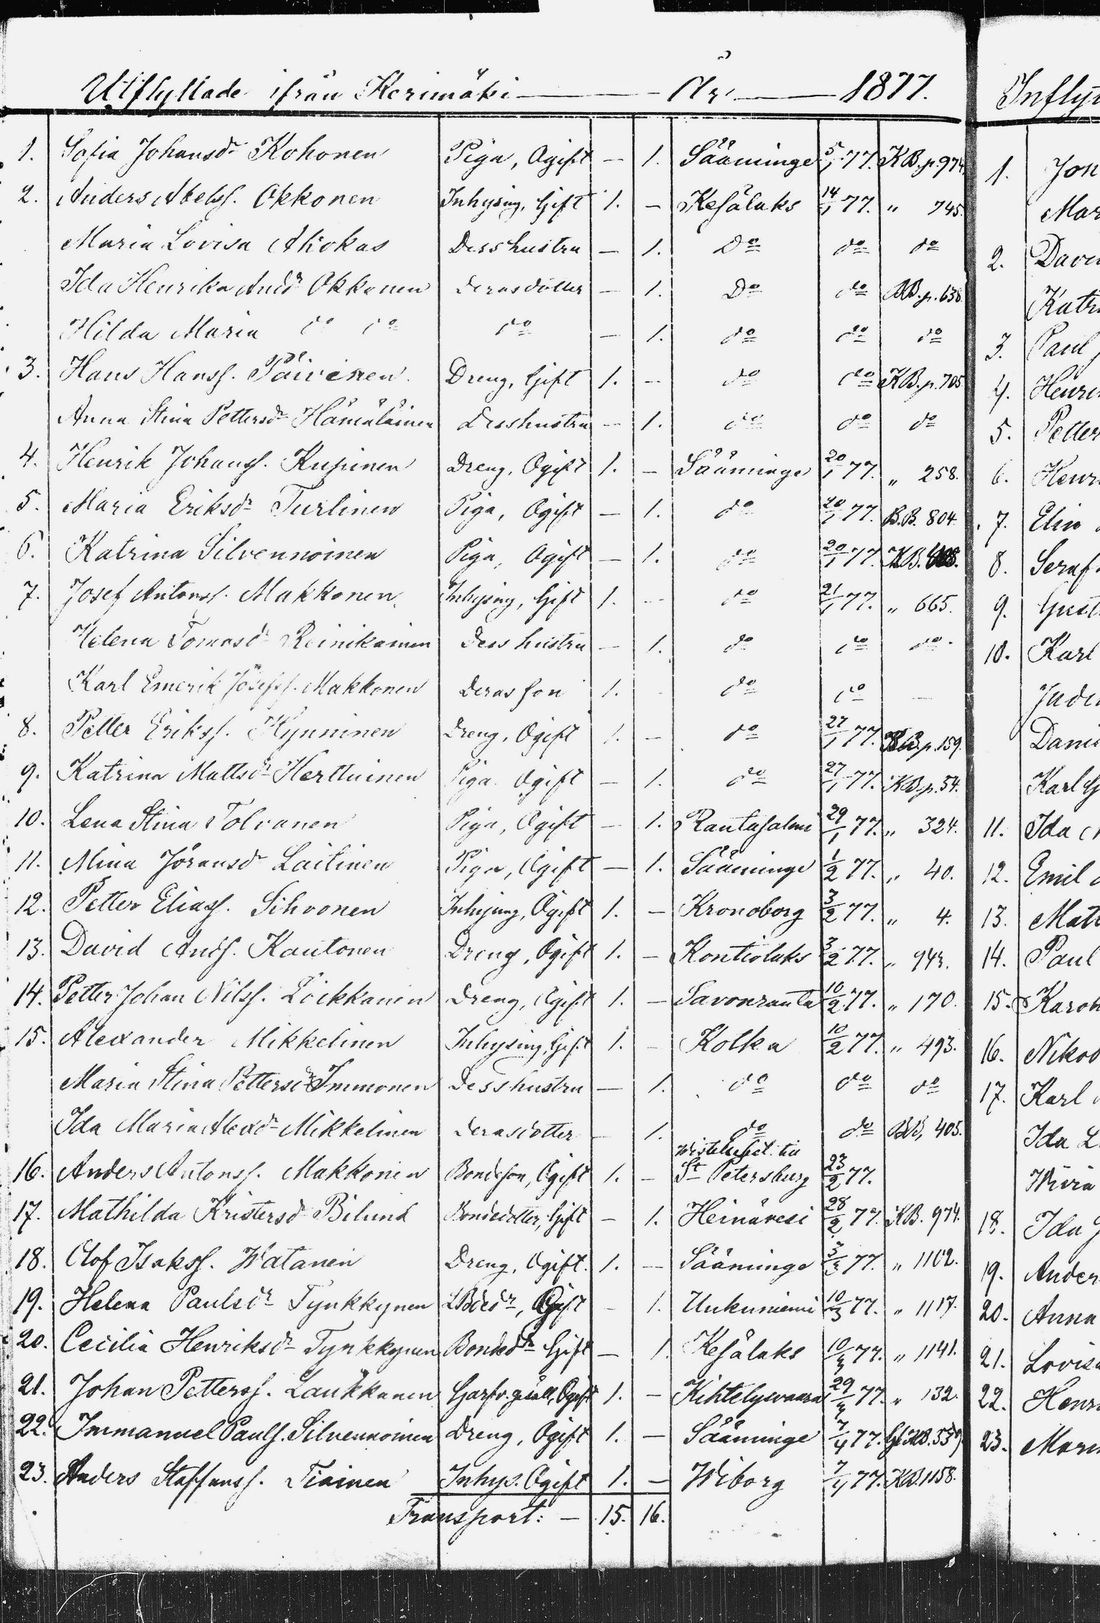 Utflyttade ifrån Kerimäki — År — 1877.
1. Sofia Johansdr Kohonen Piga, Ogift — 1. Sääminge 5/1 77. KB. p. 974
2. Anders Abelss. Okkonen Inhysing, Gift 1. — Kesälaks 14/1 77. " 745.
Maria Lovisa Ahokas Dess hustru — 1. Do do do
Ida Henrika Andsdr Okkonen deras dotter — 1. Do do BB. p. 638
Hilda Maria do do do — 1. do do do
3. Hans Hanss. Päivinen. Dreng, Gift 1. — do do KB. p. 705
Anna Stina Pettersdr Hämäläinen Dess hustru — 1. do do do
4. Henrik Johanss. Kupinen Dreng, Ogift 1. — Sääminge 20/1 77. " 258.
5. Maria Eriksdr Turtinen Piga, Ogift — 1. do 20/1 77. B.B. 804
6. Katrina Silvennoinen Piga, Ogift — 1. do 20/1 77. KB.
7. Josef Antonss. Makkonen. Inhysing, Gift 1. — do 21/1 77. " 665.
Helena Tomasdr Reinikainen dess hustru — 1. do do do
Karl Emerik Josefss. Makkonen deras son 1. do do —
8. Petter Erikss. Kynninen Dreng, Ogift 1. — do 27/1 77. p. 159.
9. Katrina Mattsdr Herttuinen Piga. Ogift — 1. do 27/1 77. KB. p. 54.
10. Lena Stina Tolvanen Piga, Ogift — 1. Rantasalmi 29/1 77. " 324.
11. Mina Jöransdr Laitinen Piga, Ogift — 1. Sääminge 1/2 77. " 40.
12. Petter Eliass. Sihvonen Inhysing, Ogift 1. — Kronoborg 3/2 77. " 4.
13. David Ands. Kautonen Dreng, Ogift 1. — Kontiolaks 3/2 77. " 942.
14. Petter Johan Nilss. Löikkanen Dreng, Ogift 1. — Savonranta 10/2 77. " 170.
15. Alexander Mikkelinen Inhysing, Gift 1. — Kolka 10/2 77. " 493.
Maria Stina Pettersdr Immonen Dess hustru — 1. do do do
Ida Maria Alexdr Mikkelinen deras dotter — 1. do do 405.
16. Anders Antonss. Makkonen Bondeson, Ogift 1. — till St Petersburg 23/2 77.
17. Mathilda Kristersdr Bilund Bondedotter, Gift — 1. Heinävesi 28/2 77. KB. 974.
18. Olof Isakss. Watanen Dreng, Ogift. 1. — Sääminge 3/3 77. " 1102.
19. Helena Paulsdr Tynkkynen Ogift — 1. Uukuniemi 10/3 77. " 1117.
20. Cecilia Henriksdr Tynkkynen Bondedr Gift — 1. Kesälaks 10/3 77. " 1141.
21. Johan Petterss. Laukkanen Garfv. gesäll, Ogift 1. — Kihtelysvaara 29/3 77. " 132.
22. Immanuel Pauls. Silvennoinen Dreng, Ogift 1. — Sääminge 7/4 77. KB. 559
23. Anders Staffanss. Tiainen Inhys. Ogift 1. — Wiborg 7/4 77. KB. 1158.
Transport: — 15. 16.
Inflyt
1. Jon
Mar
2. Davi
Katr
3. Paul
4. Henri
5. Petter
6. Henr
7. Elin
8. Seraf
9. Gust
10. Karl
Dani
Karl G
11. Ida
12. Emil
13. Matt
14. Paul
15. Karo
16. Niko
17. Karl
Ida L
Wivia
18. Ida
19. Ander
20. Anna
21. Lovisa
22. Henr
23. Mari